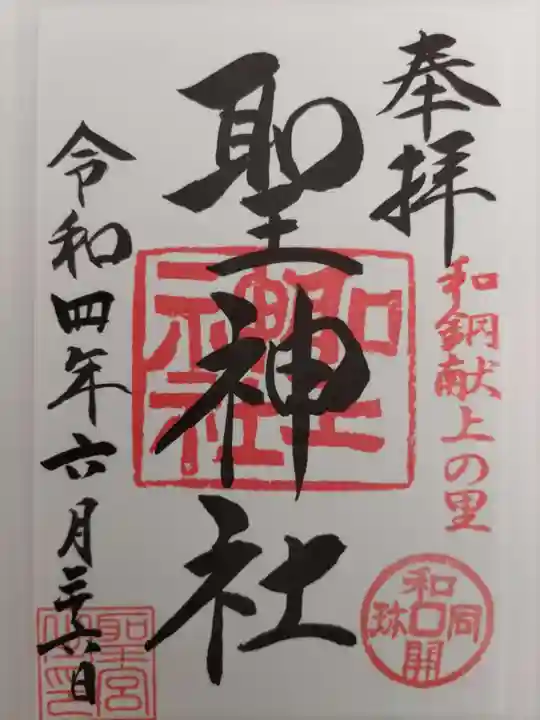 奉拝
和銅献上の里
和同開珎
聖神社
聖神社
令和四年六月二十六日